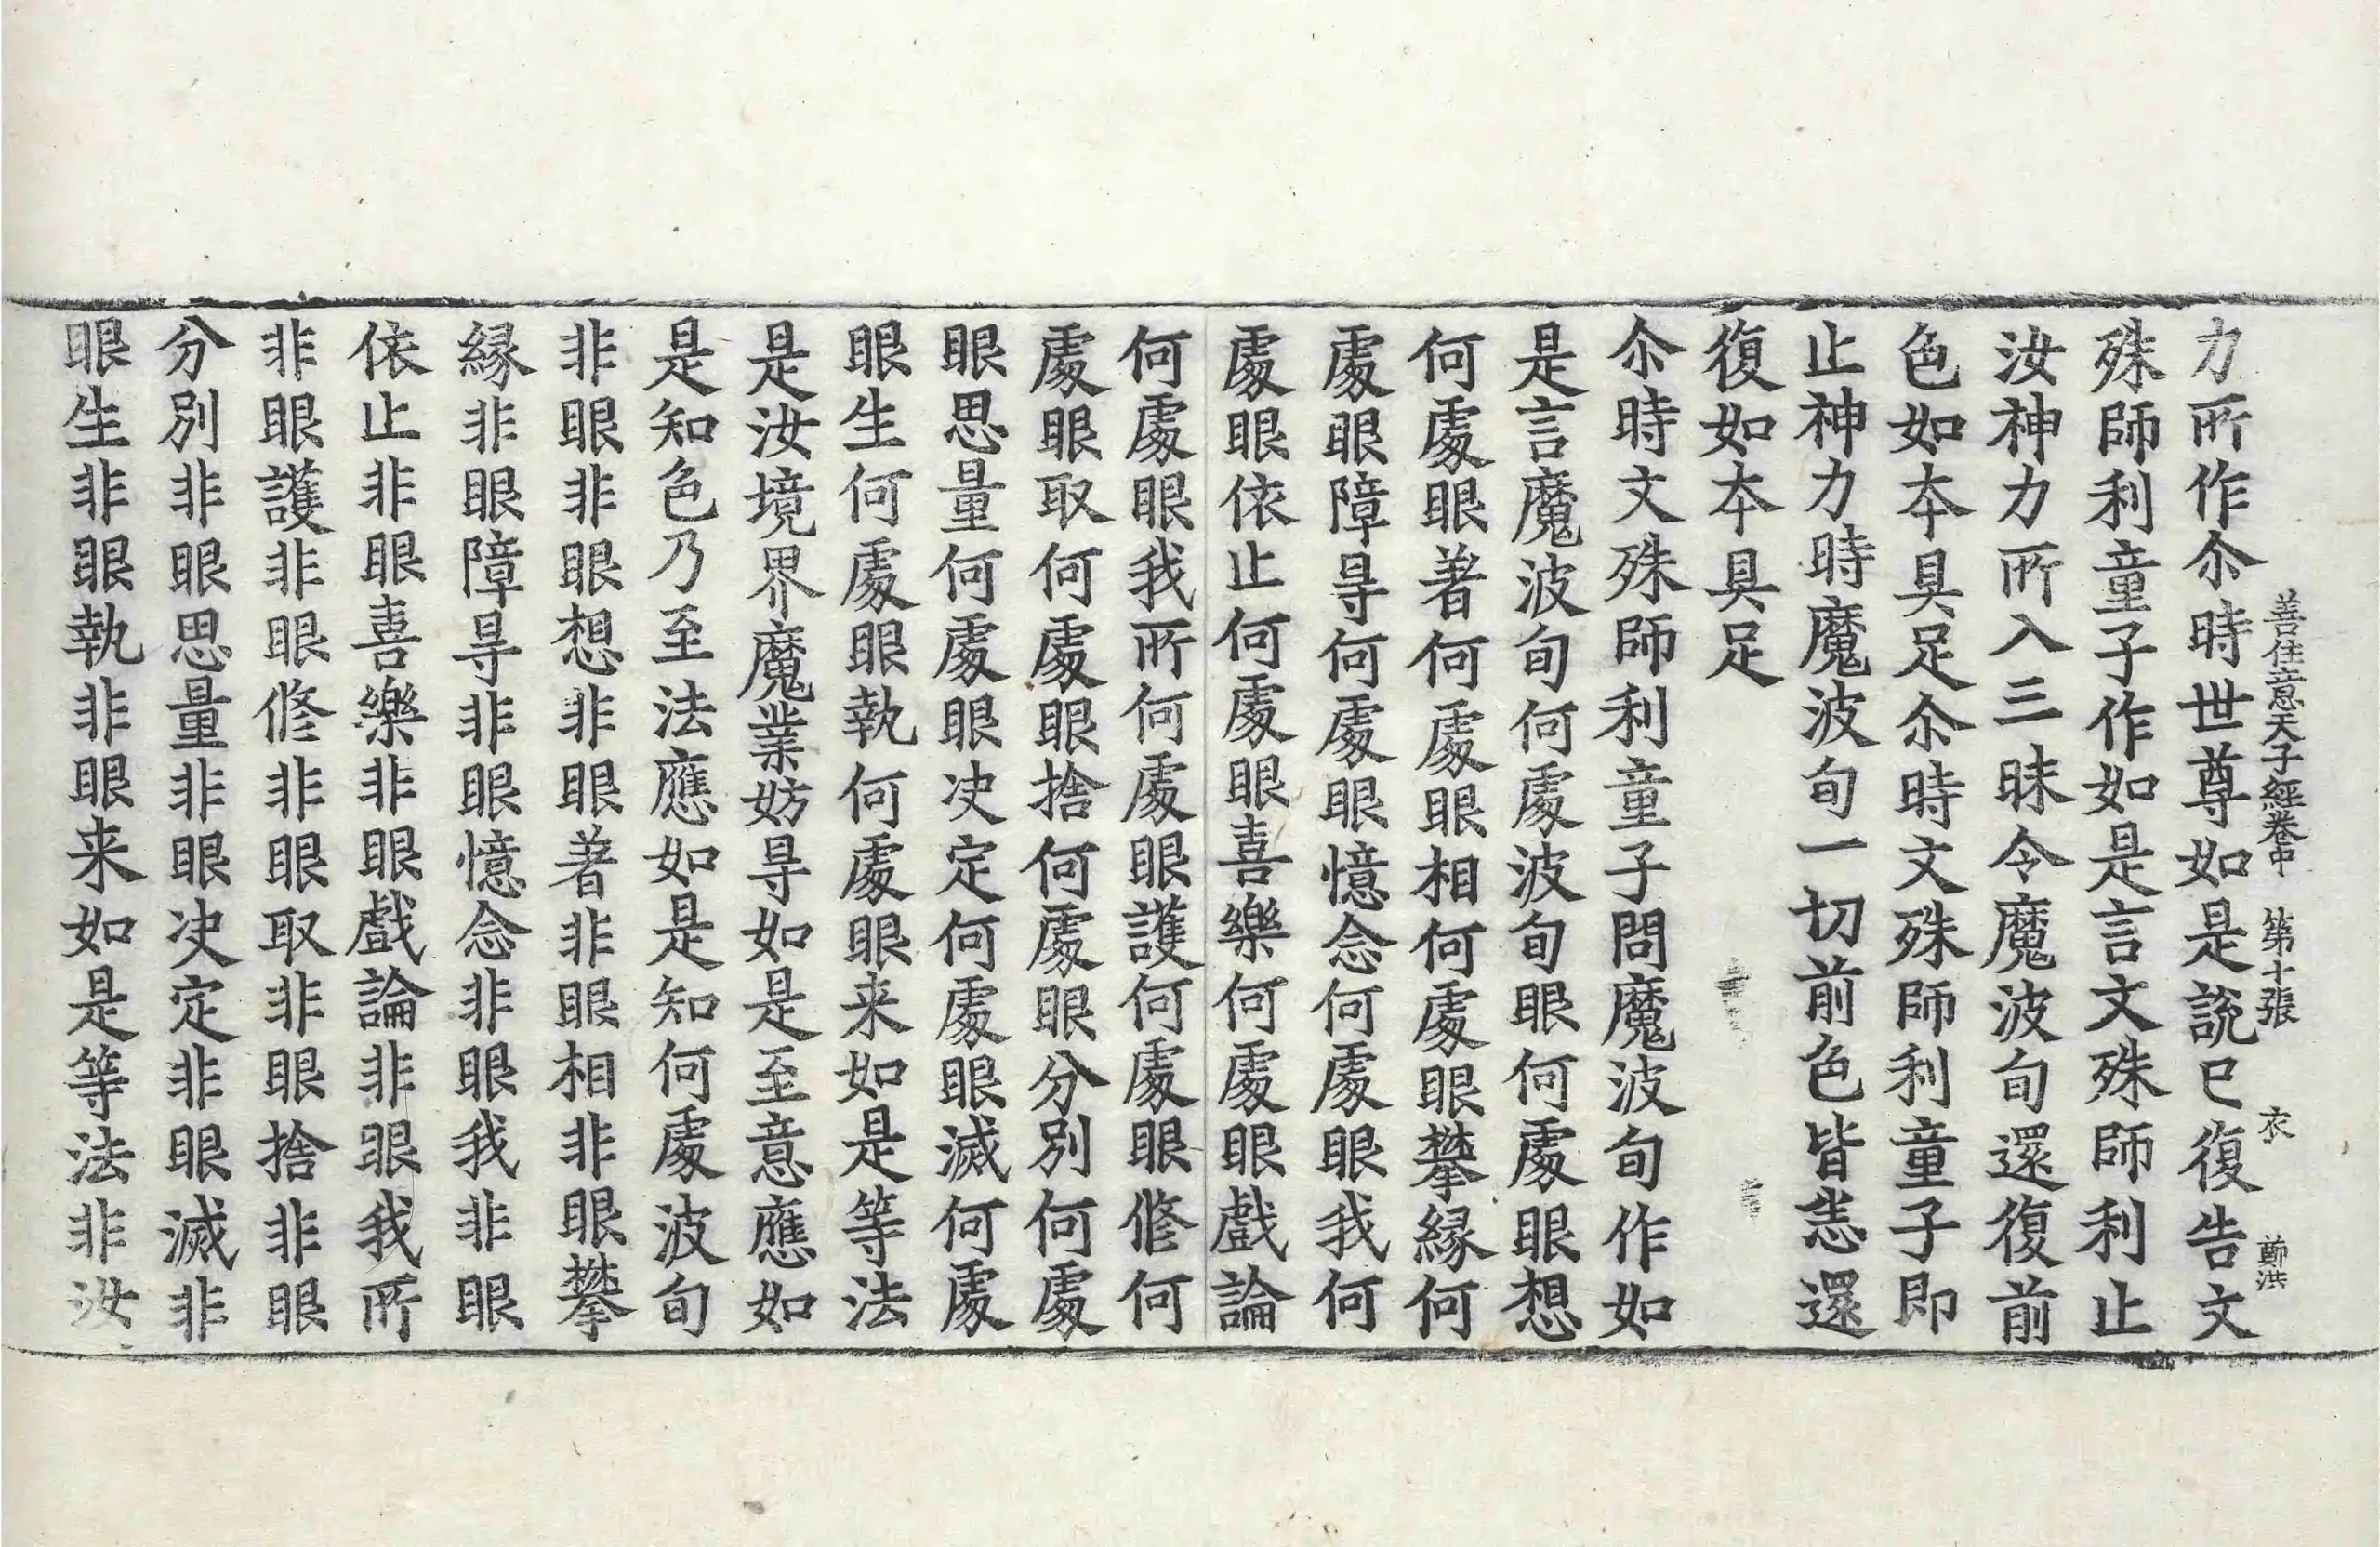 善住意天子經卷中　第十張　衣　鄭洪
力所作尒時世尊如是說已復告文
殊師利童子作如是言文殊師利止
汝神力所入三昧令魔波旬還復前
色如本具足尒時文殊師利童子即
止神力時魔波旬一切前色皆悉還
復如本具足
尒時文殊師利童子問魔波旬作如
是言魔波旬何處波旬眼何處眼想
何處眼著何處眼相何處眼攀緣何
處眼障㝵何處眼憶念何處眼我何
處眼依止何處眼喜樂何處眼戲論
何處眼我所何處眼護何處眼修何
處眼取何處眼捨何處眼分別何處
眼思量何處眼决定何處眼滅何處
眼生何處眼執何處眼来如是等法
是汝境界魔業妨㝵如是至意應如
是知色乃至法應如是知何處波旬
非眼非眼想非眼著非眼相非眼攀
緣非眼障㝵非眼憶念非眼我非眼
依止非眼喜樂非眼戲論非眼我所
非眼護非眼修非眼取非眼捨非眼
分別非眼思量非眼决定非眼滅非
眼生非眼執非眼来如是等法非汝